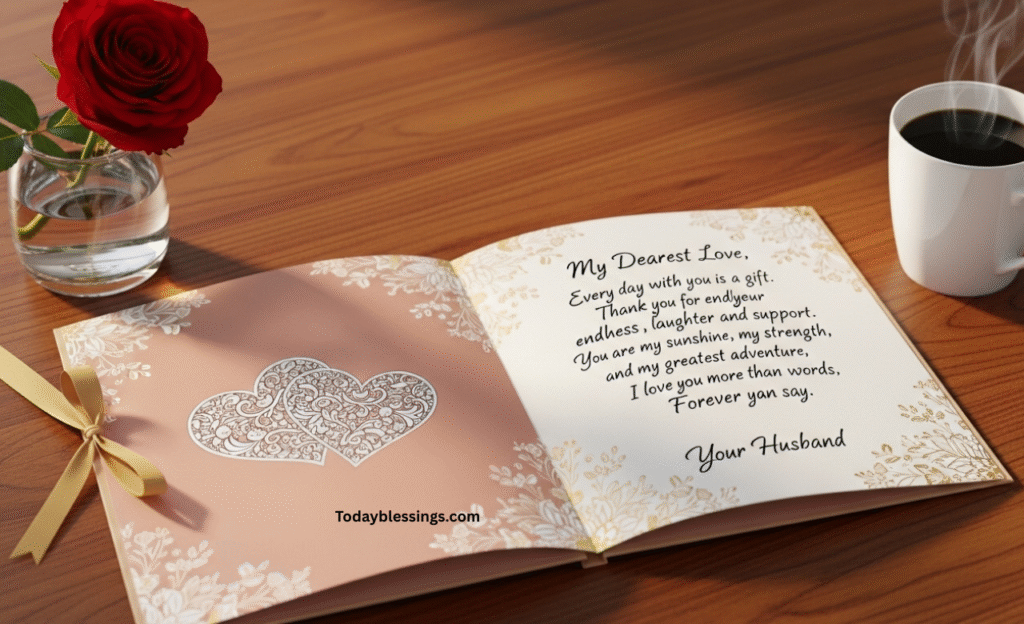 My Dearest Love,
Every day with you is a gift.
Thank you for endlyeur
endhess, laughter and support.
You are my sunshine, my strength,
and my greatest adventure,
I love you more than words,
Forever yan say.
Your Husband
Todayblessings.com